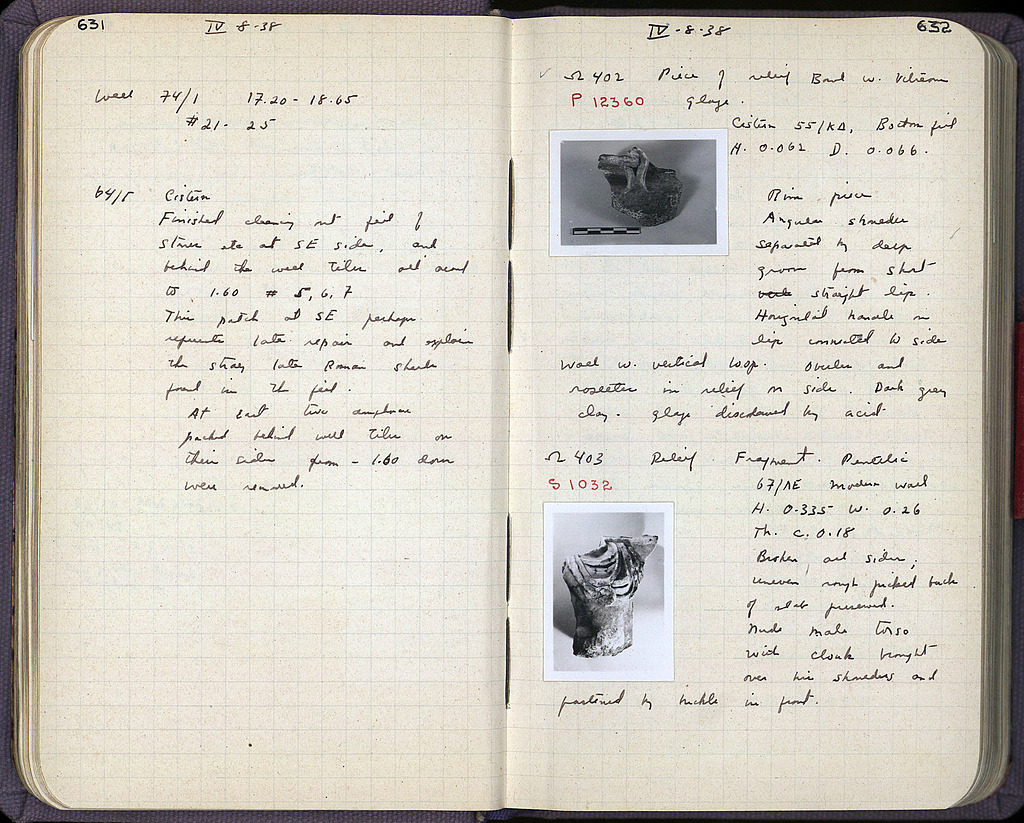 631
IV-8-38
Well 74/1 17.20-18.65
#21- 25
64/Γ Cistern
Finished cleaning out fill of
stones etc at SE side, and
behind the well tiles all around
to 1.60 # 5, 6, 7
This patch at SE perhaps
represents late repair and explains
the stray late Roman sherds
found in the fill.
At East two amphorae
packed behind well tiles on
their sides from - 1.60 down
were removed.
IV-8-38
632
Ω 402 Piece of relief Bowl w. Vitreous
P 12360 glaze.
Cistern 55/ΚΔ, Bottom fill
H. 0.062 D. 0.066.
Rim piece
Angular shoulder
separated by deep
groove from short
straight lip.
Horizontal handle on
lip connected to side
wall w. vertical loop. Ovules and
rosettes in relief on side. Dark grey
clay. glaze discolored by acid
Ω 403 Relief Fragment. Pentelic
S 1032
67/ΛΕ modern wall
H. 0.335 W. 0.26
Th. c. 0.18
Broken all sides;
uneven rough picked back
of slab preserved.
Nude male torso
with cloak brought
over his shoulders and
fastened by buckle in front.